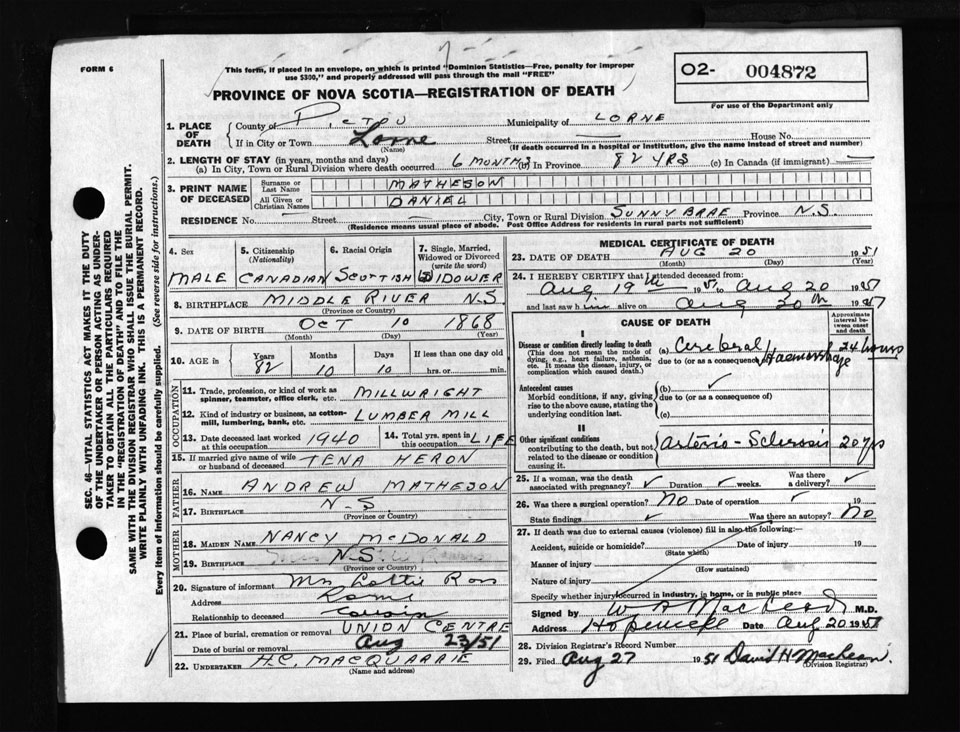 FORM 6
This form, if placed in an envelope, on which is printed "Dominion Statistics—Free, penalty for improper
use $300," and properly addressed will pass through the mail "FREE"
O2- 004872
For use of the Department only
PROVINCE OF NOVA SCOTIA—REGISTRATION OF DEATH
SEC. 46—VITAL STATISTICS ACT MAKES IT THE DUTY
OF THE UNDERTAKER OR PERSON ACTING AS UNDER-
TAKER TO OBTAIN ALL THE PARTICULARS REQUIRED
IN THE "REGISTRATION OF DEATH" AND TO FILE THE
SAME WITH THE DIVISION REGISTRAR WHO SHALL ISSUE THE BURIAL PERMIT.
WRITE PLAINLY WITH UNFADING INK. THIS IS A PERMANENT RECORD.
Every item of Information should be carefully supplied. (See reverse side for instructions.)
1. PLACE OF DEATH
County of PICTOU Municipality of LORNE
If in City or Town Lorne Street House No.
(Name) (If death occurred in a hospital or institution, give the name instead of street and number)
2. LENGTH OF STAY (in years, months and days)
(a) In City, Town or Rural Division where death occurred 6 MONTHS (b) In Province 82 YRS (c) In Canada (if immigrant) —
3. PRINT NAME OF DECEASED
Surname or Last Name MATHESON
All Given or Christian Names DANIEL
RESIDENCE No. Street — City, Town or Rural Division SUNNY BRAE Province N.S.
(Residence means usual place of abode. Post Office Address for residents in rural parts not sufficient)
4. Sex
MALE
5. Citizenship (Nationality)
CANADIAN
6. Racial Origin
SCOTTISH
7. Single, Married, Widowed or Divorced (write the word)
WIDOWER
8. BIRTHPLACE MIDDLE RIVER N.S
(Province or Country)
9. DATE OF BIRTH OCT 10 1868
(Month) (Day) (Year)
10. AGE in Years Months Days If less than one day old
82 10 10 hrs. or min.
OCCUPATION
11. Trade, profession, or kind of work as spinner, teamster, office clerk, etc. MILLWRIGHT
12. Kind of industry or business, as cotton-mill, lumbering, bank, etc. LUMBER MILL
13. Date deceased last worked at this occupation 1940
14. Total yrs. spent in this occupation LIFE
15. If married give name of wife or husband of deceased TENA HERON
FATHER
16. NAME ANDREW MATHESON
17. BIRTHPLACE N.S.
(Province or Country)
MOTHER
18. MAIDEN NAME NANCY McDONALD
19. BIRTHPLACE N.S.
(Province or Country)
20. Signature of informant Mrs Lottie Ross
Address Lorne
Relationship to deceased cousin
21. Place of burial, cremation or removal UNION CENTRE
Date of burial or removal Aug 23/51
22. UNDERTAKER H.C. MACQUARRIE
(Name and address)
MEDICAL CERTIFICATE OF DEATH
23. DATE OF DEATH AUG 20 1951
(Month) (Day) (Year)
24. I HEREBY CERTIFY that I attended deceased from:
Aug 19th 1951 to Aug 20 1951
and last saw him alive on Aug 20th 1951
CAUSE OF DEATH
Approximate interval between onset and death
I
Disease or condition directly leading to death
(This does not mean the mode of dying, e.g., heart failure, asthenia, etc. It means the disease, injury, or complication which caused death.)
(a) Cerebral Haemorrhage 24 hours
due to (or as a consequence of)
Antecedent causes
Morbid conditions, if any, giving rise to the above cause, stating the underlying condition last.
(b)
due to (or as a consequence of)
(c)
II
Other significant conditions
contributing to the death, but not related to the disease or condition causing it.
Arterio-Sclerosis 20 yrs
25. If a woman, was the death associated with pregnancy? Duration weeks. Was there a delivery?
26. Was there a surgical operation? NO Date of operation 19
State findings Was there an autopsy? NO
27. If death was due to external causes (violence) fill in also the following:—
Accident, suicide or homicide? Date of injury 19
(State which)
Manner of injury
(How sustained)
Nature of injury
Specify whether injury occurred in industry, in home, or in public place
Signed by W A MacLeod M.D.
Address Hopewell Date Aug 20 1951
28. Division Registrar's Record Number
29. Filed Aug 27 1951 David H MacLean
(Division Registrar)